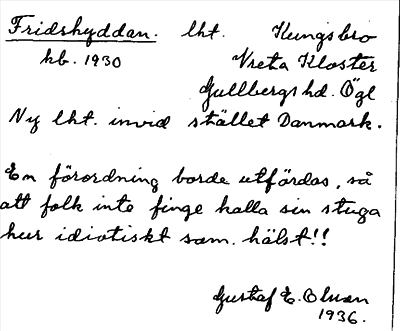 Fridshyddan. lht. Kungsbro
kb. 1930 Vreta Kloster
Gullbergs hd. Ögl
Ny lht. invid stället Danmark.
En förordning borde utfärdas, så
att folk inte finge kalla sin stuga
hur idiotiskt som hälst!!
Gustaf E. Olson
1936.